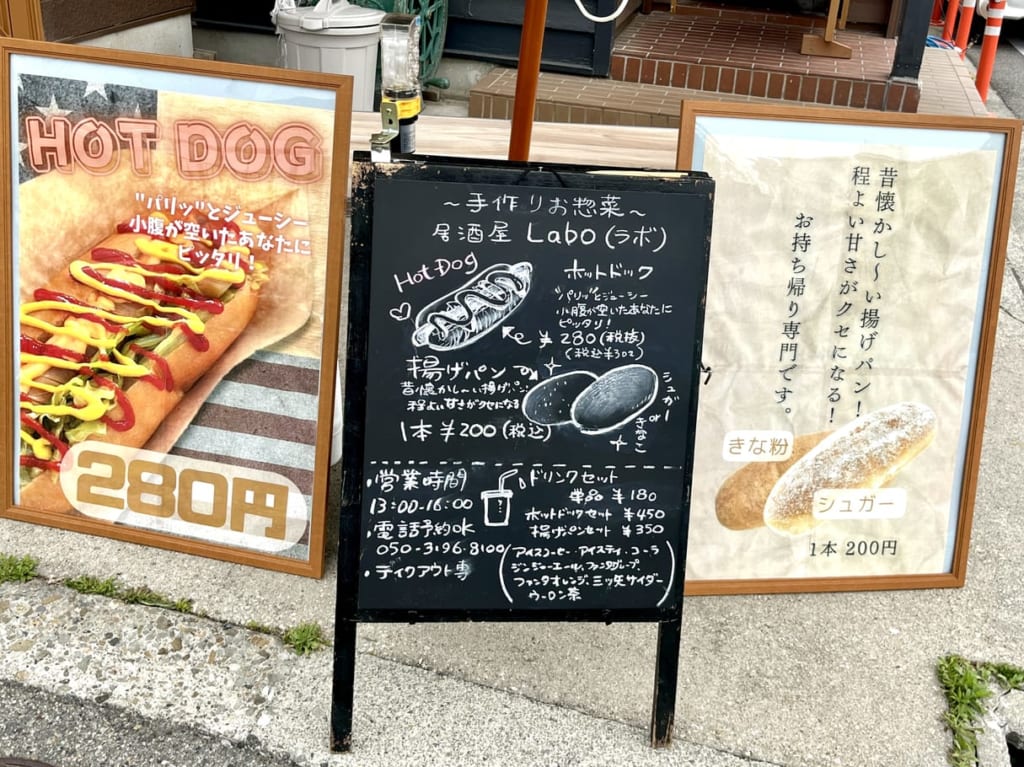 HOT DOG
"パリッ"とジューシー
小腹が空いたあなたに
ピッタリ!
280円
~手作りお惣菜~
居酒屋 Labo(ラボ)
Hot Dog
ホットドック
"パリッ"とジューシー
小腹が空いたあなたに
ピッタリ!
¥280(税抜)
(税込¥302)
揚げパン
昔懐かし~い揚げパン
程よい甘さがクセになる
1本¥200(税込)
シュガー
or
きなこ
・営業時間
13:00-16:00
・電話予約OK
050-3196-8100
・テイクアウト専
ドリンクセット
単品 ¥180
ホットドックセット ¥450
揚げパンセット ¥350
(アイスコーヒー・アイスティ・コーラ
ジンジャーエール、ファンタグレープ、
ファンタオレンジ、三ッ矢サイダー
ウーロン茶)
昔懐かし~い揚げパン!
程よい甘さがクセになる!
お持ち帰り専門です。
きな粉
シュガー
1本 200円